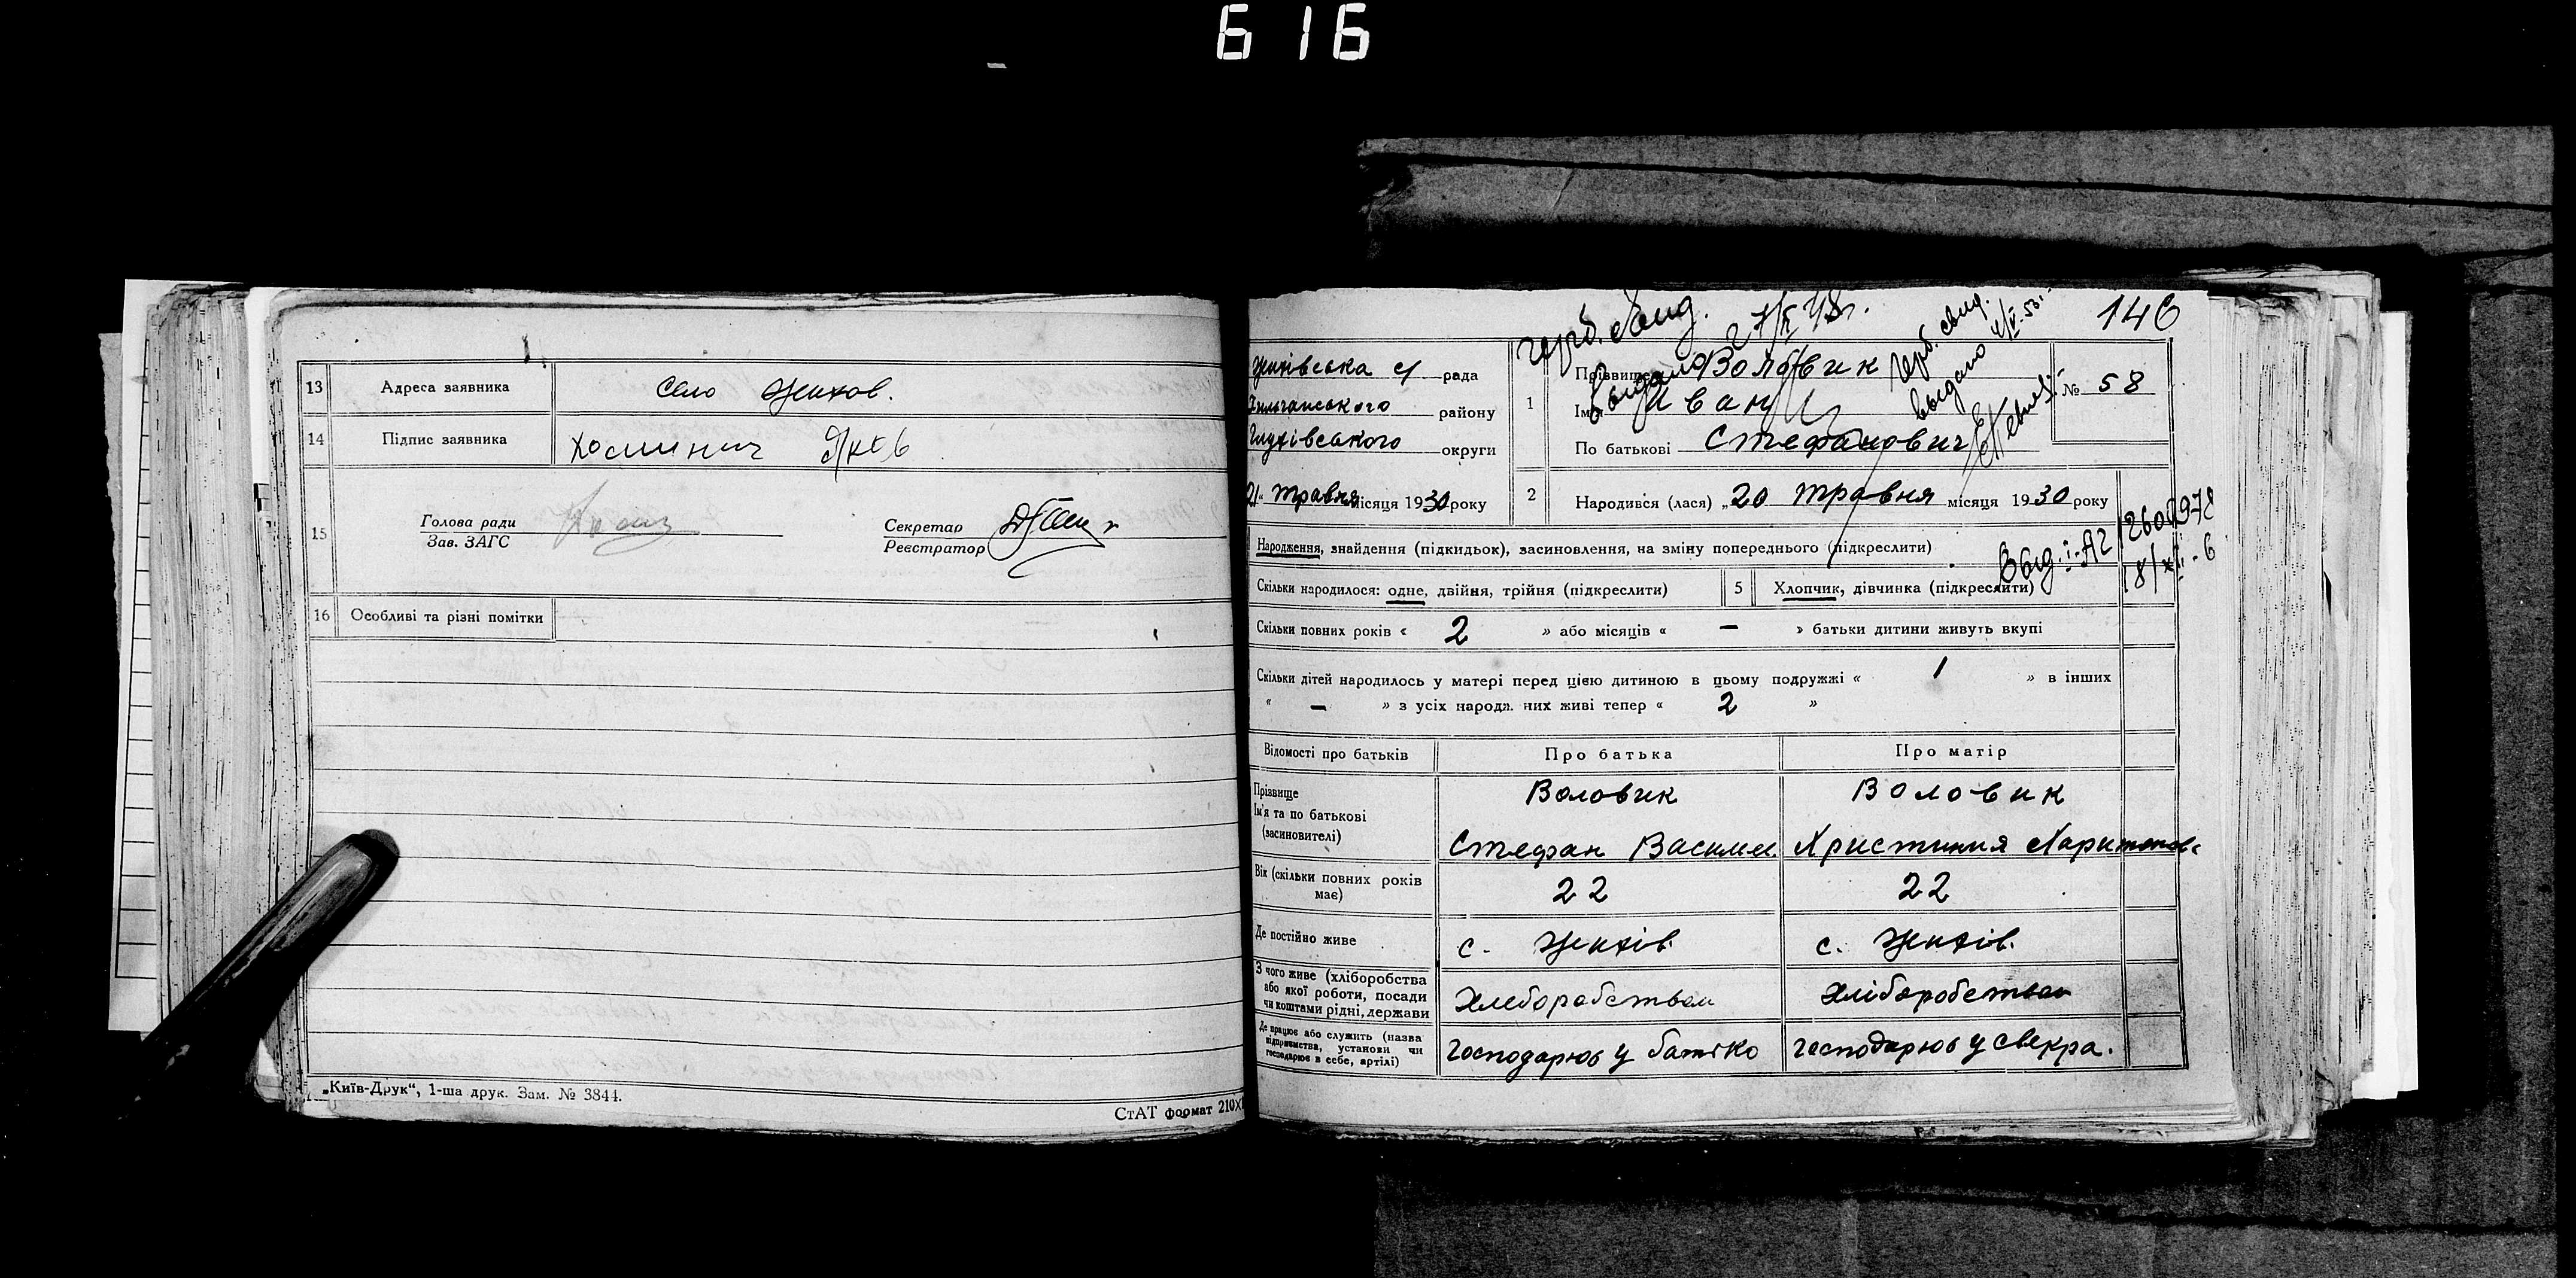 616
13 Адреса заявника село Жихов.
14 Підпис заявника
15 Голова ради
Зав. ЗАГС
Секретар
Реєстратор
16 Особливі та різні помітки
„Київ-Друк“, 1-ша друк. Зам. № 3844.
СтАТ формат 210Х
146
герб. свид. 27/X 48г.
Выдано
герб. свид.
выдано
Жихівська с/ рада
району
Глухівського округи
21" травня місяця 1930 року
1 Прізвище Воловик
Ім'я Иван
По батькові Стефанович
№ 58
2 Народився (лася) „20 травня місяця 1930 року
Народження, знайдення (підкидьок), засиновлення, на зміну попереднього (підкреслити)
Скільки народилося: одне, двійня, трійня (підкреслити) 5 Хлопчик, дівчинка (підкреслити)
Скільки повних років « 2 » або місяців « — » батьки дитини живуть вкупі
Скільки дітей народилось у матері перед цією дитиною в цьому подружжі « 1 » в інших
« — » з усіх народж. них живі тепер « 2 »
Відомості про батьків Про батька Про матір
Прізвище Воловик Воловик
Ім'я та по батькові
(засиновителі) Стефан Васильев. Христиния Харитонов
Вік (скільки повних років має) 22 22
Де постійно живе с. Жихів. с. Жихів.
З чого живе (хліборобства
або якої роботи, посади
чи коштами рідні, держави Хлеборобством Хліборобством
Де працює або служить (назва
підприємства, установи чи
господарює в себе, артілі) господарює у батько господарює у свекра.